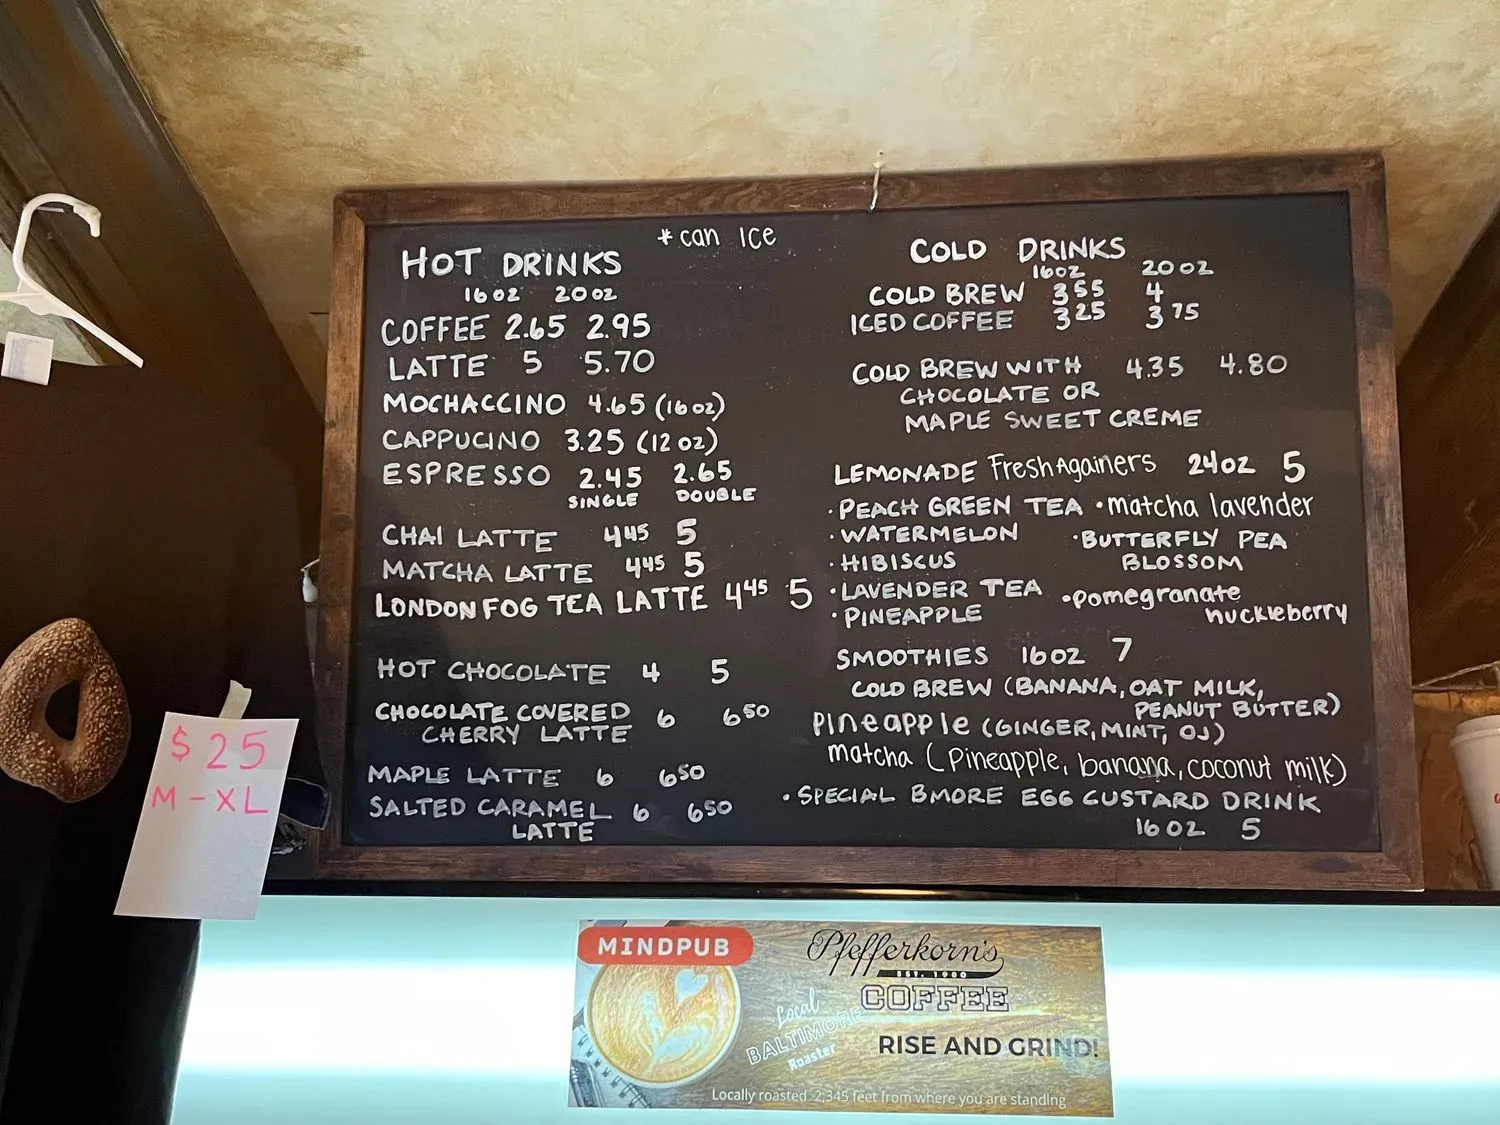 * can ICE
HOT DRINKS
16 oz 20 oz
COFFEE 2.65 2.95
LATTE 5 5.70
MOCHACCINO 4.65 (16 oz)
CAPPUCINO 3.25 (12 oz)
ESPRESSO 2.45 2.65
SINGLE DOUBLE
CHAI LATTE 4 45 5
MATCHA LATTE 4 45 5
LONDON FOG TEA LATTE 4 45 5
HOT CHOCOLATE 4 5
CHOCOLATE COVERED 6 6 50
CHERRY LATTE
MAPLE LATTE 6 6 50
SALTED CARAMEL 6 6 50
LATTE
COLD DRINKS
16 oz 20 oz
COLD BREW 3 55 4
ICED COFFEE 3 25 3 75
COLD BREW WITH 4.35 4.80
CHOCOLATE OR
MAPLE SWEET CREME
LEMONADE FreshAgainers 24 oz 5
· PEACH GREEN TEA · matcha lavender
· WATERMELON · BUTTERFLY PEA
· HIBISCUS BLOSSOM
· LAVENDER TEA · pomegranate
· PINEAPPLE huckleberry
SMOOTHIES 16 oz 7
COLD BREW (BANANA, OAT MILK,
PEANUT BUTTER)
Pineapple (GINGER, MINT, OJ)
matcha (Pineapple, banana, coconut milk)
· SPECIAL BMORE EGG CUSTARD DRINK
16 OZ 5
$25
M - XL
MINDPUB
Pfefferkorn's
EST. 1900
COFFEE
Local
BALTIMORE
Roaster
RISE AND GRIND!
Locally roasted 2,345 feet from where you are standing